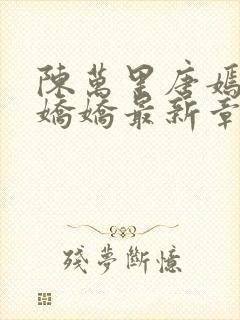 陳萬里唐嫣
嬌嬌最新章
殘夢斷憶